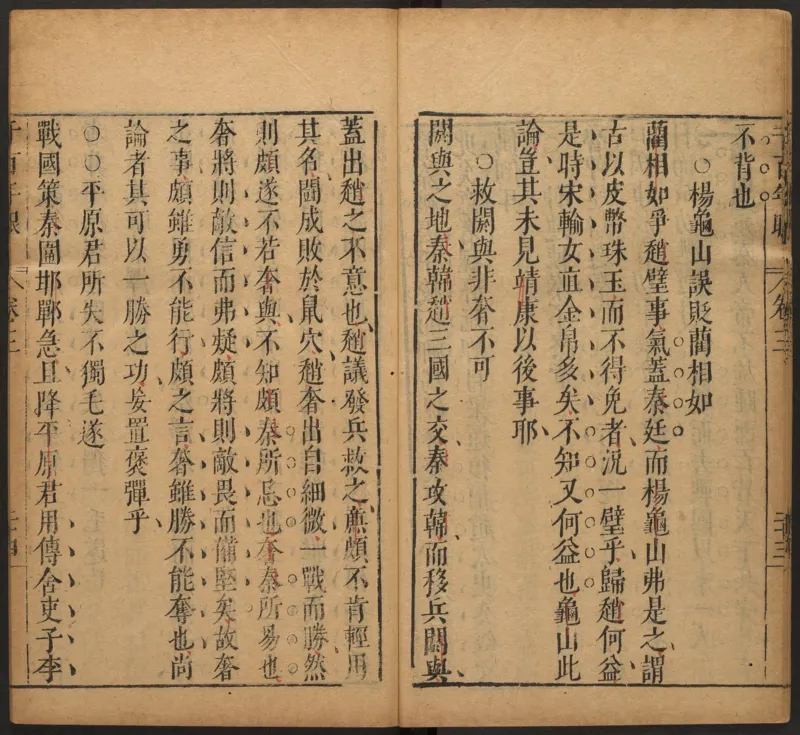 不背也
○楊龜山誤貶藺相如
藺相如爭趙璧事氣蓋秦廷而楊龜山弗是之謂
古以皮幣珠玉而不得免者況一璧乎歸趙何益
是時宋輸女直金帛亥矣不知又何益也龜山此
論豈其未見靖康以後事耶
○救閼與非奢不可
閼與之地秦韓趙三國之交秦攻韓而移兵閼與
千百年眼
卷三
二十三
蓋出趙之不意也趙議發兵救之廉頗不肯輕用
其名鬬成敗於鼠穴趙奢出自細微一戰而勝然
則頗遂不若奢與不知頗秦所忌也奢秦所易也
奢將則敵信而弗疑頗將則敵畏而備堅矣故奢
之事頗雖勇不能行頗之言奢雖勝不能奪也尚
論者其可以一勝之功妄置褒彈乎
○○平原君所失不獨毛遂
戰國策秦圍邯鄲急且降平原君用傳舍吏子李
千百年眼
卷三